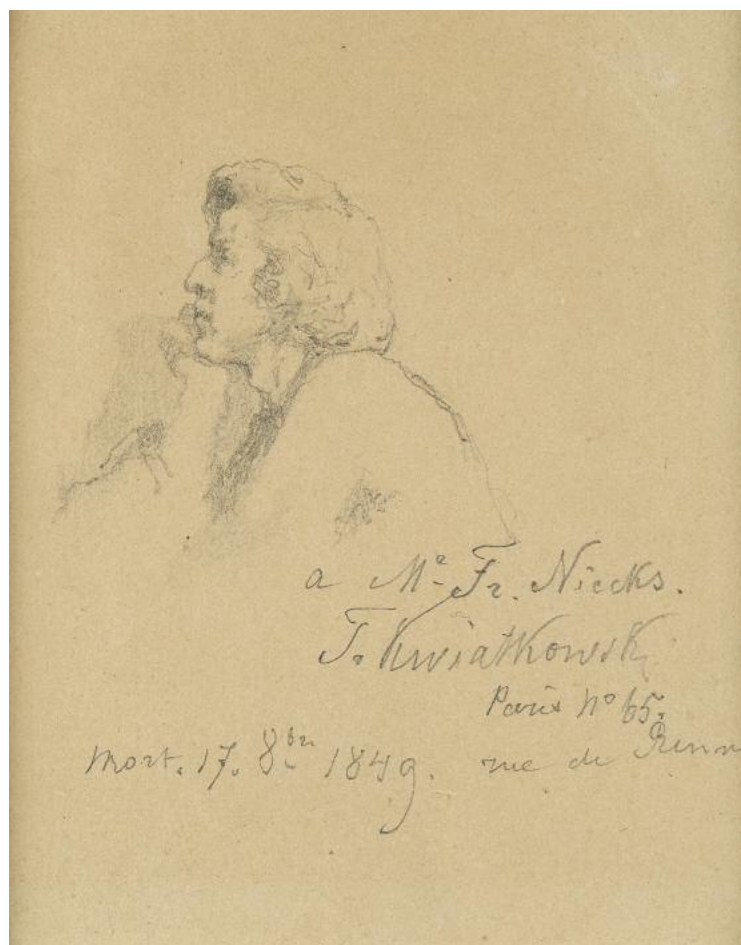 a Mr Fr. Niecks.
T. Kwiatkowski
Paris No 65.
mort. 17. 8bre 1849. rue de Renn